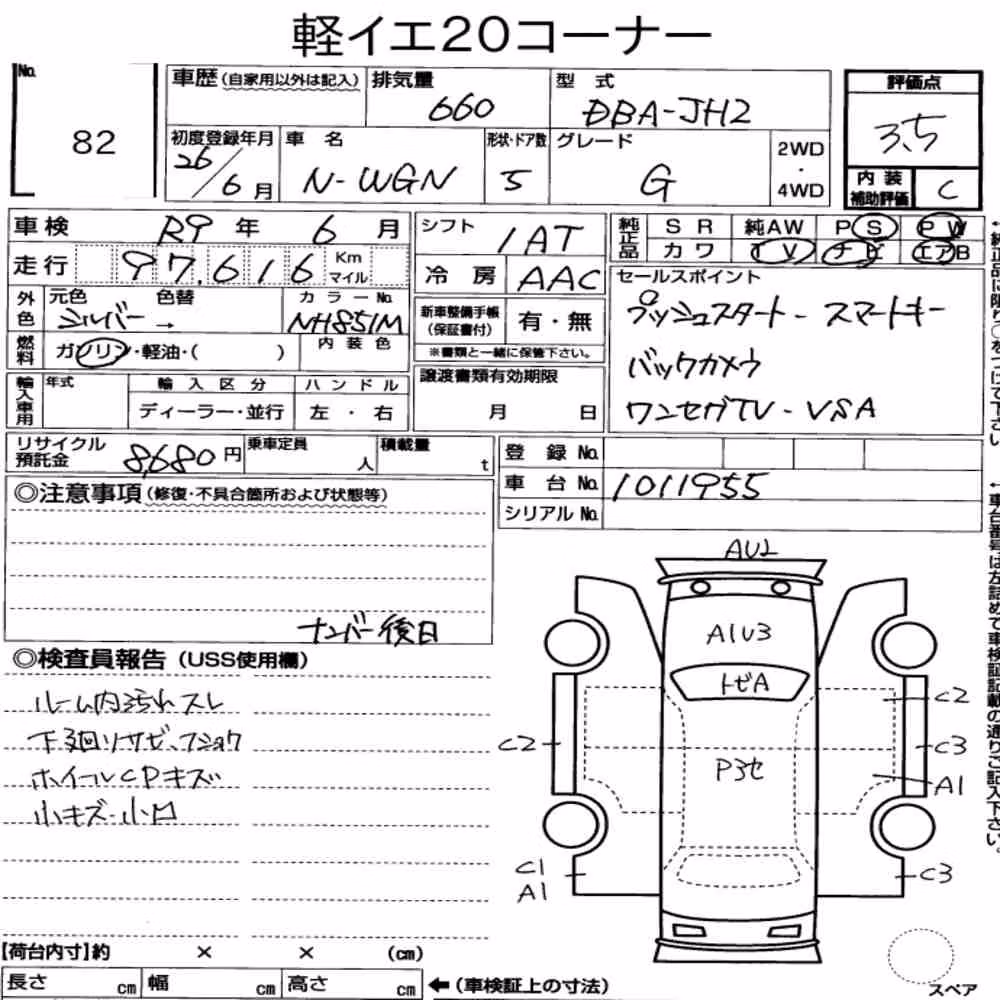 軽イエ20コーナー
No.
82
車歴(自家用以外は記入)
排気量
660
型 式
DBA-JH2
評価点
3.5
初度登録年月
26/6月
車 名
N-WGN
形状・ドア数
5
グレード
G
2WD
・
4WD
内 装
補助評価
C
車検 R9 年 6 月
シフト
1AT
純正品
S R 純AW P S P W
カ ワ T V ナ ビ エアB
走行 97,616 Km
マイル
冷 房 AAC
セールスポイント
プッシュスタート - スマートキー
バックカメラ
ワンセグTV - VSA
外色
元色 色替 カラーNo.
シルバー → NH851M
新車整備手帳
(保証書付)
有・無
※書類と一緒に保管下さい。
燃料
ガソリン・軽油・( )
内 装 色
輸入車用
年式
輸 入 区 分
ハ ン ド ル
ディーラー・並行
左 ・ 右
譲渡書類有効期限
月 日
リサイクル
預託金
8,680円
乗車定員
人
積載量
t
登 録 No.
車 台 No. 1011955
シリアル No.
◎注意事項(修復・不具合箇所および状態等)
ナンバー後日
◎検査員報告(USS使用欄)
ルーム内汚れスレ
下廻りサビ、フショク
ホイールCPキズ
小キズ・小凹
AU2
A1U3
トビA
P3セ
C2
C2
C3
A1
C1
A1
C3
スペア
【荷台内寸】約 × × (cm)
長さ cm 幅 cm 高さ cm ←(車検証上の寸法)
←純正品に限り○をつけて下さい
←車台番号は左詰めで車検証記載の通りご記入下さい。